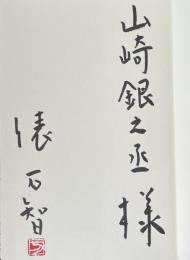 山崎銀之丞様
俵万智